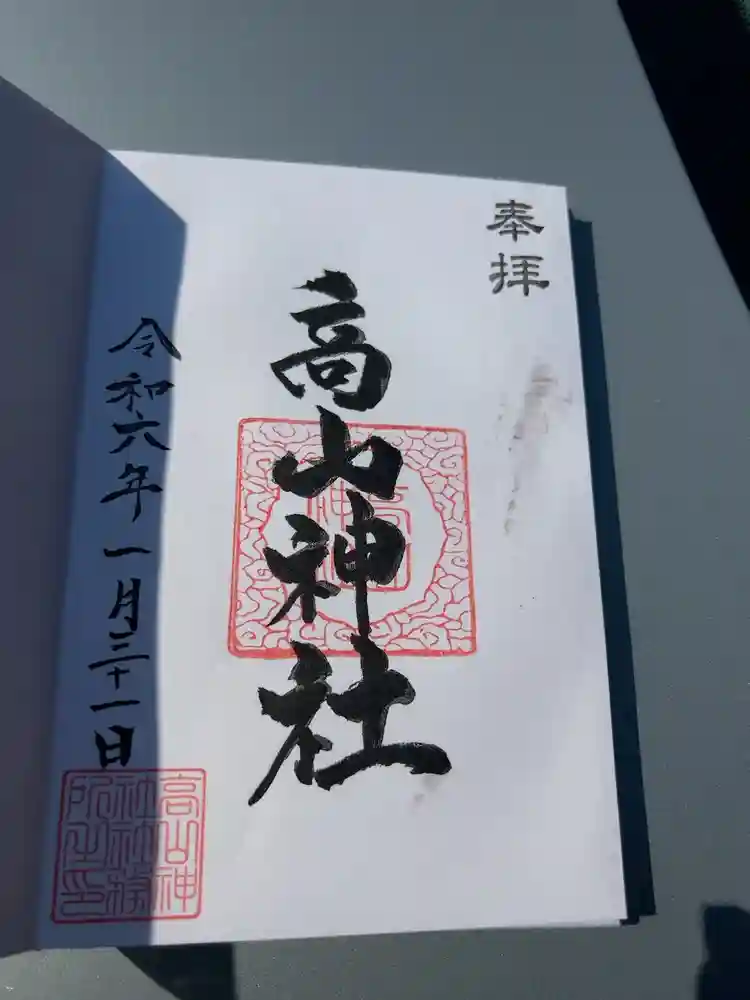 奉拝
高山神社
令和六年一月三十一日
高山神
社社務
所之印